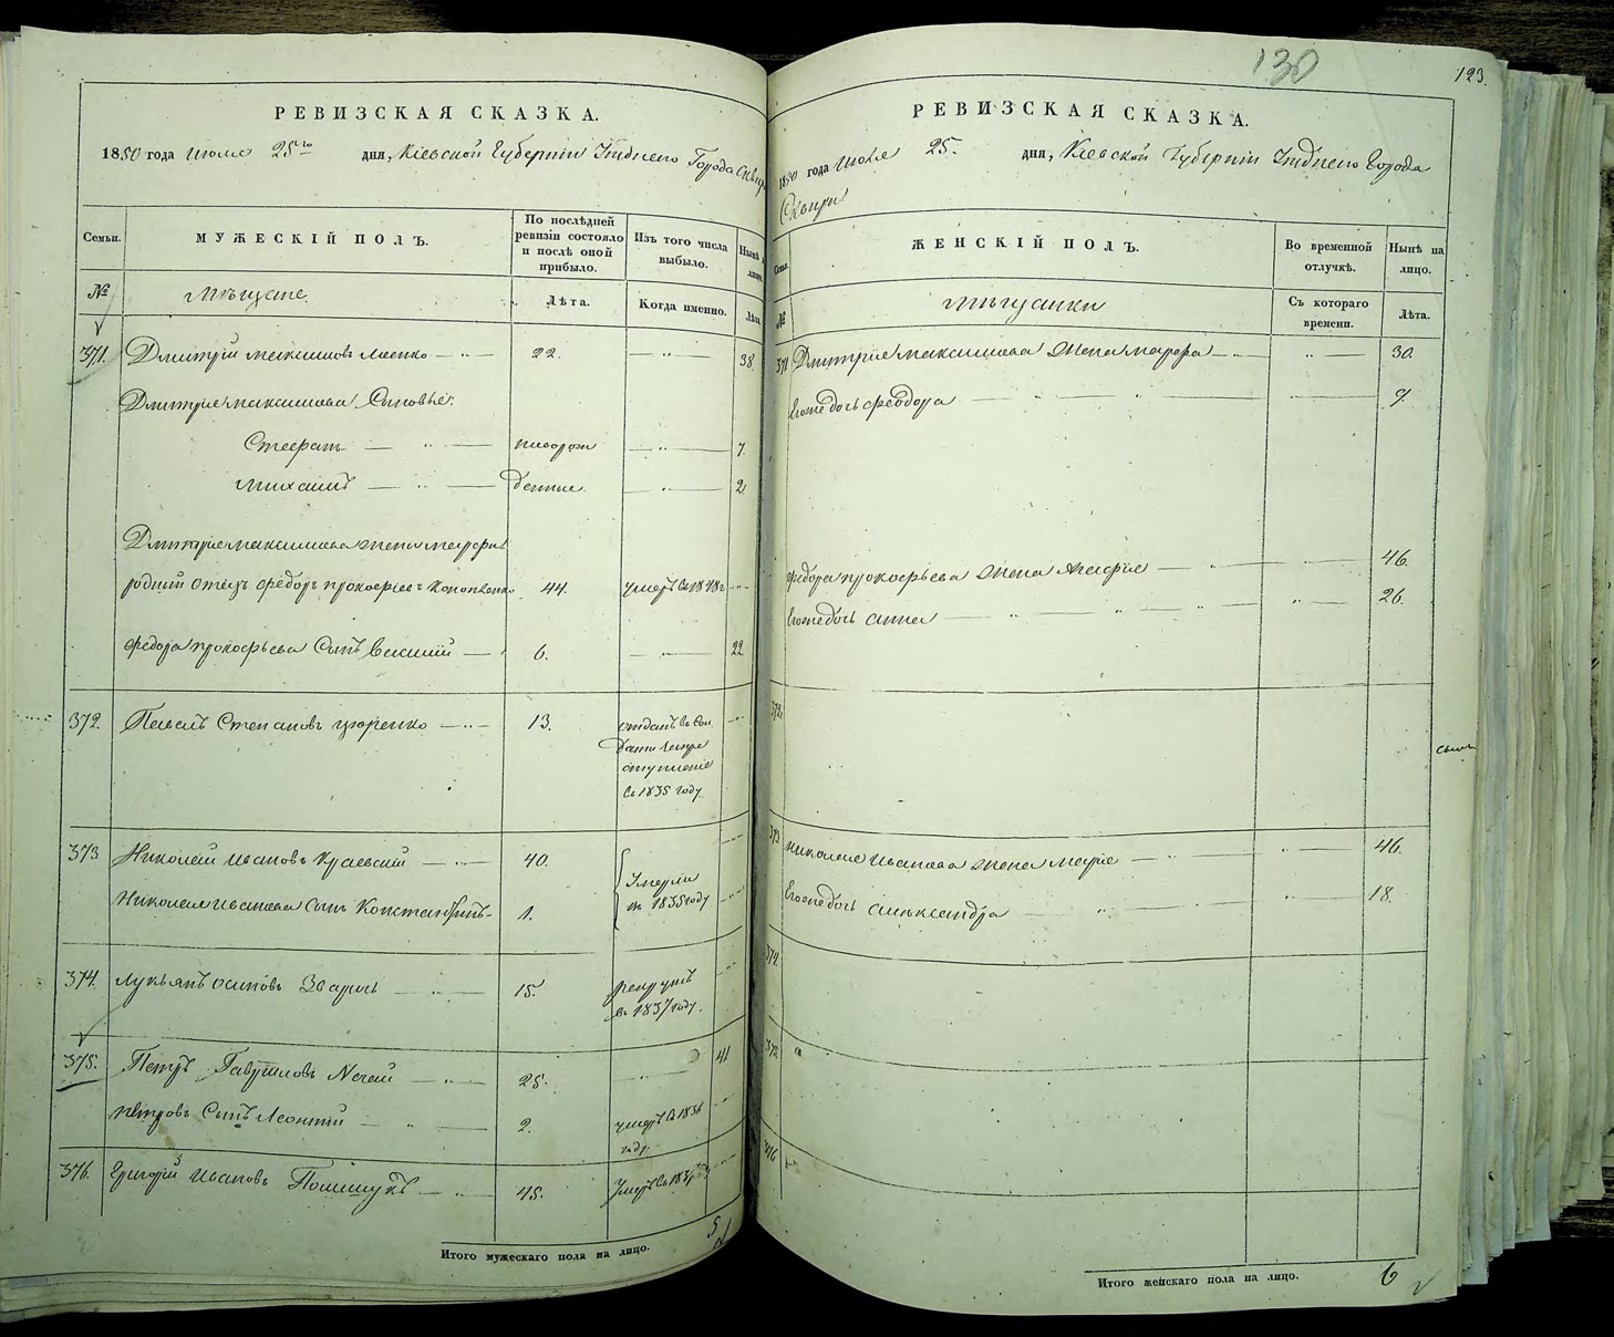 РЕВИЗСКАЯ СКАЗКА.
1850 года июля 25го дня, Кіевской Губерніи Уѣднего Города Сквир
Семьи.
МУЖЕСКІЙ ПОЛЪ.
По послѣдней ревизіи состояло и послѣ оной прибыло.
Изъ того числа выбыло.
Нынѣ лицо.
№
Мѣщане.
Лѣта.
Когда именно.
Лѣта.
371. Дмитрій Максимовъ 22. 38
Дмитрія Максимова Сыновья:
Стефанъ новорож 7.
Михаилъ денные. 2
Дмитрія Максимова жены Марфы
родный отецъ Федоръ Прокофіевъ Кононенко 44. умеръ въ 1848 г
Федора Прокофьева Сынъ Василій 6. 22
372. Павелъ Степановъ 13. отданъ въ Сол
даты за пре
ступленіе
въ 1835 году
373 Николай Ивановъ Краевскій 40. Умерли
Николая Иванова Сынъ Константинъ 1. въ 1835 году
374. Лукьянъ Осиповъ Зваричъ 15. рекрутъ
въ 1837 году.
375. Петръ Гавриловъ Нечай 25. 41
Петровъ Сынъ Леонтій 2. умеръ въ 1836
году.
376. Григорій Ивановъ Полищукъ 45. Умеръ въ 183
Итого мужескаго пола на лицо. 5
130
123.
РЕВИЗСКАЯ СКАЗКА.
1850 года июля 25. дня, Кіевской Губерніи Уѣднего Города
Сквири
Семьи.
ЖЕНСКІЙ ПОЛЪ.
Во временной отлучкѣ.
Нынѣ на лицо.
№
Мѣщанки
Съ котораго времени.
Лѣта.
371 Дмитрія Максимова жена Марфа 30.
Его же дочь Феодора 9.
Федора Прокофьева жена 46.
Его же дочь Анна 26.
372.
373 Николая Иванова жена Марія 46.
Его же дочь Александра 18.
374.
376
Итого женскаго пола на лицо. 6